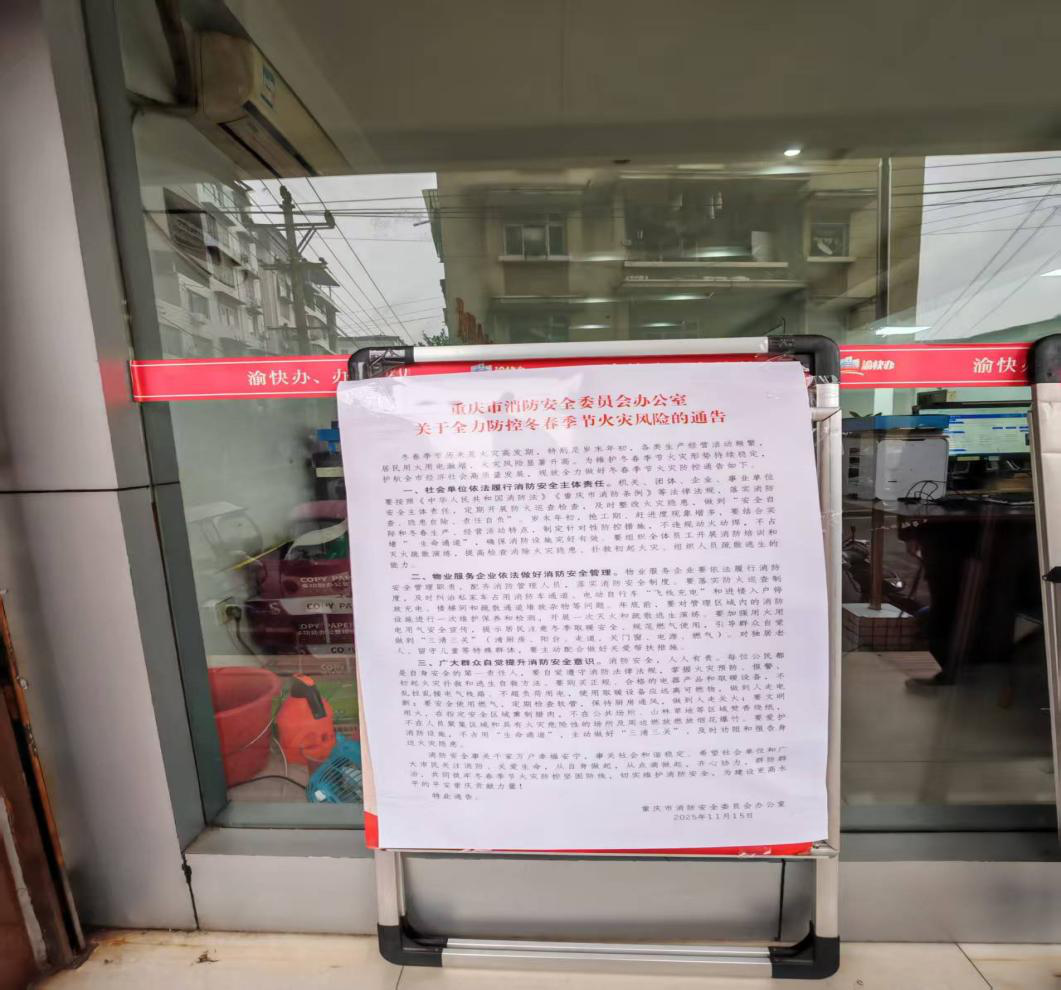 渝快办、办
渝快办
渝快
重庆市消防安全委员会办公室
关于全力防控冬春季节火灾风险的通告
冬春季节历来是火灾高发期，特别是岁末年初，各类生产经营活动频繁，
居民用火用电激增，火灾风险显著升高。为维护冬春季节火灾形势持续稳定，
护航全市经济社会高质量发展，现就全力做好冬春季节火灾防控通告如下。
一、社会单位依法履行消防安全主体责任。机关、团体、企业、事业单位
要按照《中华人民共和国消防法》《重庆市消防条例》等法律法规，落实消防
安全主体责任，定期开展防火巡查检查，及时整改火灾隐患，做到“安全自
查、隐患自除、责任自负”。岁末年初，抢工期、赶进度现象增多，要结合实
际和冬春生产、经营活动特点，制定针对性防控措施，不违规动火动焊，不占
堵“生命通道”，确保消防设施完好有效。要组织全体员工开展消防培训和
灭火疏散演练，提高检查消除火灾隐患、扑救初起火灾、组织人员疏散逃生的
能力。
二、物业服务企业依法做好消防安全管理。物业服务企业要依法履行消防
安全管理职责，配齐消防管理人员，落实消防安全制度。要落实防火巡查制
度，及时纠治私家车占用消防车通道、电动自行车“飞线充电”和进楼入户停
放充电、楼梯间和疏散通道堆放杂物等问题。年底前，要对管理区域内的消防
设施进行一次维护保养和检测，开展一次灭火和疏散逃生演练。要加强用火用
电用气安全宣传，提示居民注意冬季取暖安全，规范燃气使用，引导群众自觉
做到“三清三关”（清厨房、阳台、走道，关门窗、电源、燃气）。对独居老
人、留守儿童等特殊群体，要主动配合做好关爱帮扶措施。
三、广大群众自觉提升消防安全意识。消防安全，人人有责。每位公民都
是自身安全的第一责任人，要自觉遵守消防法律法规，掌握火灾预防、报警、
初起火灾扑救和逃生自救方法。要购买正规、合格的电器产品和取暖设备，不
乱拉乱接电气线路、不超负荷用电，使用取暖设备应远离可燃物，做到人走电
断；要安全使用燃气，定期检查软管，保持厨房通风，做到人走火关；要文明
用火，在指定安全区域熏制腊肉，不在公共场所、山林草地等区域焚香烧纸，
不在人员聚集区域和具有火灾危险性的场所及周边燃放燃放烟花爆竹。要爱护
消防设施，不占用“生命通道”，主动做好“三清三关”，及时劝阻和报告身
边火灾隐患。
消防安全事关千家万户幸福安宁，事关社会和谐稳定。希望社会单位和广
大市民关注消防、关爱生命，从自身做起，从点滴做起，齐心协力，群防群
治，共同筑牢冬春季节火灾防控坚固防线，切实维护消防安全，为建设更高水
平的平安重庆贡献力量！
特此通告。
重庆市消防安全委员会办公室
2025年11月15日
COPY PAPER
COPY PAP